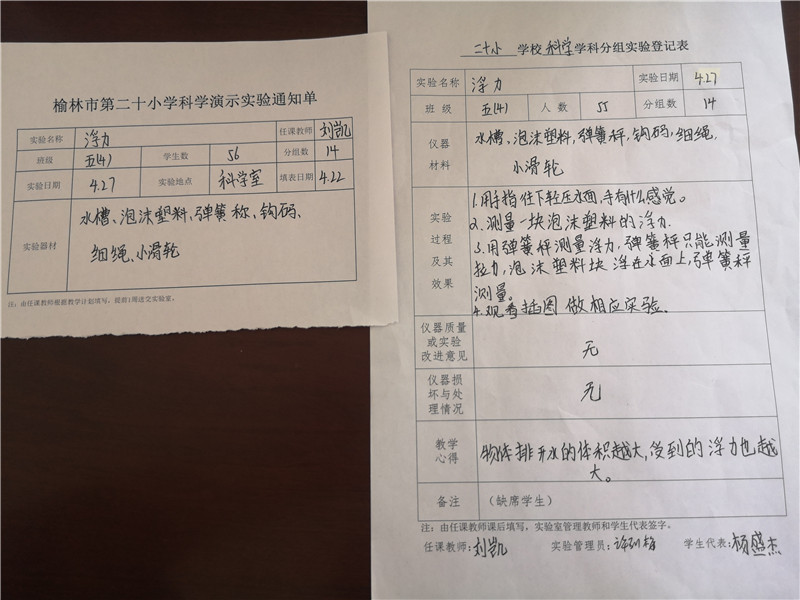 榆林市第二十小学科学演示实验通知单
实验名称 浮力 任课教师 刘凯
班级 五(4) 学生数 56 分组数 14
实验日期 4.27 实验地点 科学室 填表日期 4.22
实验器材
水槽、泡沫塑料、弹簧称、钩码、
细绳、小滑轮
注：由任课教师根据教学计划填写，提前1周送交实验室。
二十小 学校 科学 学科分组实验登记表
实验名称 浮力 实验日期 4.27
班 级 五(4) 人 数 55 分组数 14
仪器
材料
水槽、泡沫塑料，弹簧秤，钩码，细绳，
小滑轮
实验
过程
及其
效果
1.用手指往下轻压水面，手有什么感觉。
2.测量一块泡沫塑料的浮力.
3.用弹簧秤测量浮力，弹簧秤只能测量
拉力，泡沫塑料块浮在水面上，弹簧秤
测量。
4.观看插图 做相应实验.
仪器质量
或实验
改进意见
无
仪器损
坏与处
理情况
无
教学
心得
物体排开水的体积越大，受到的浮力也越
大。
备注 （缺席学生）
注：由任课教师课后填写，实验室管理教师和学生代表签字。
任课教师：刘凯 实验管理员： 学生代表：杨盛杰